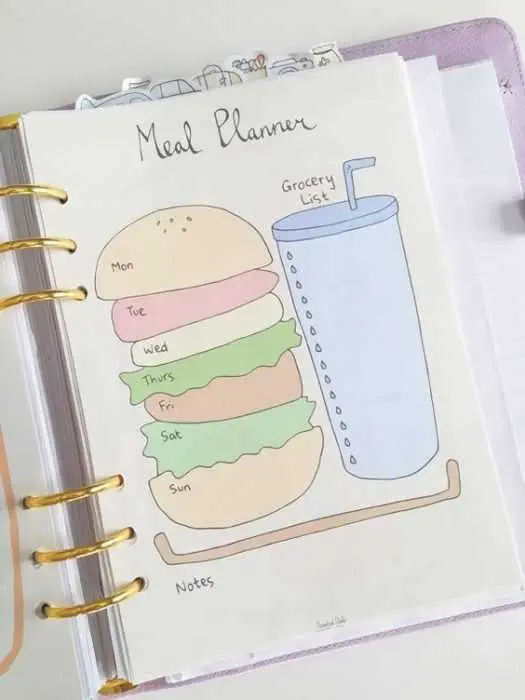 Meal Planner
Grocery
List
Mon
Tue
Wed
Thurs
Fri
Sat
Sun
Notes